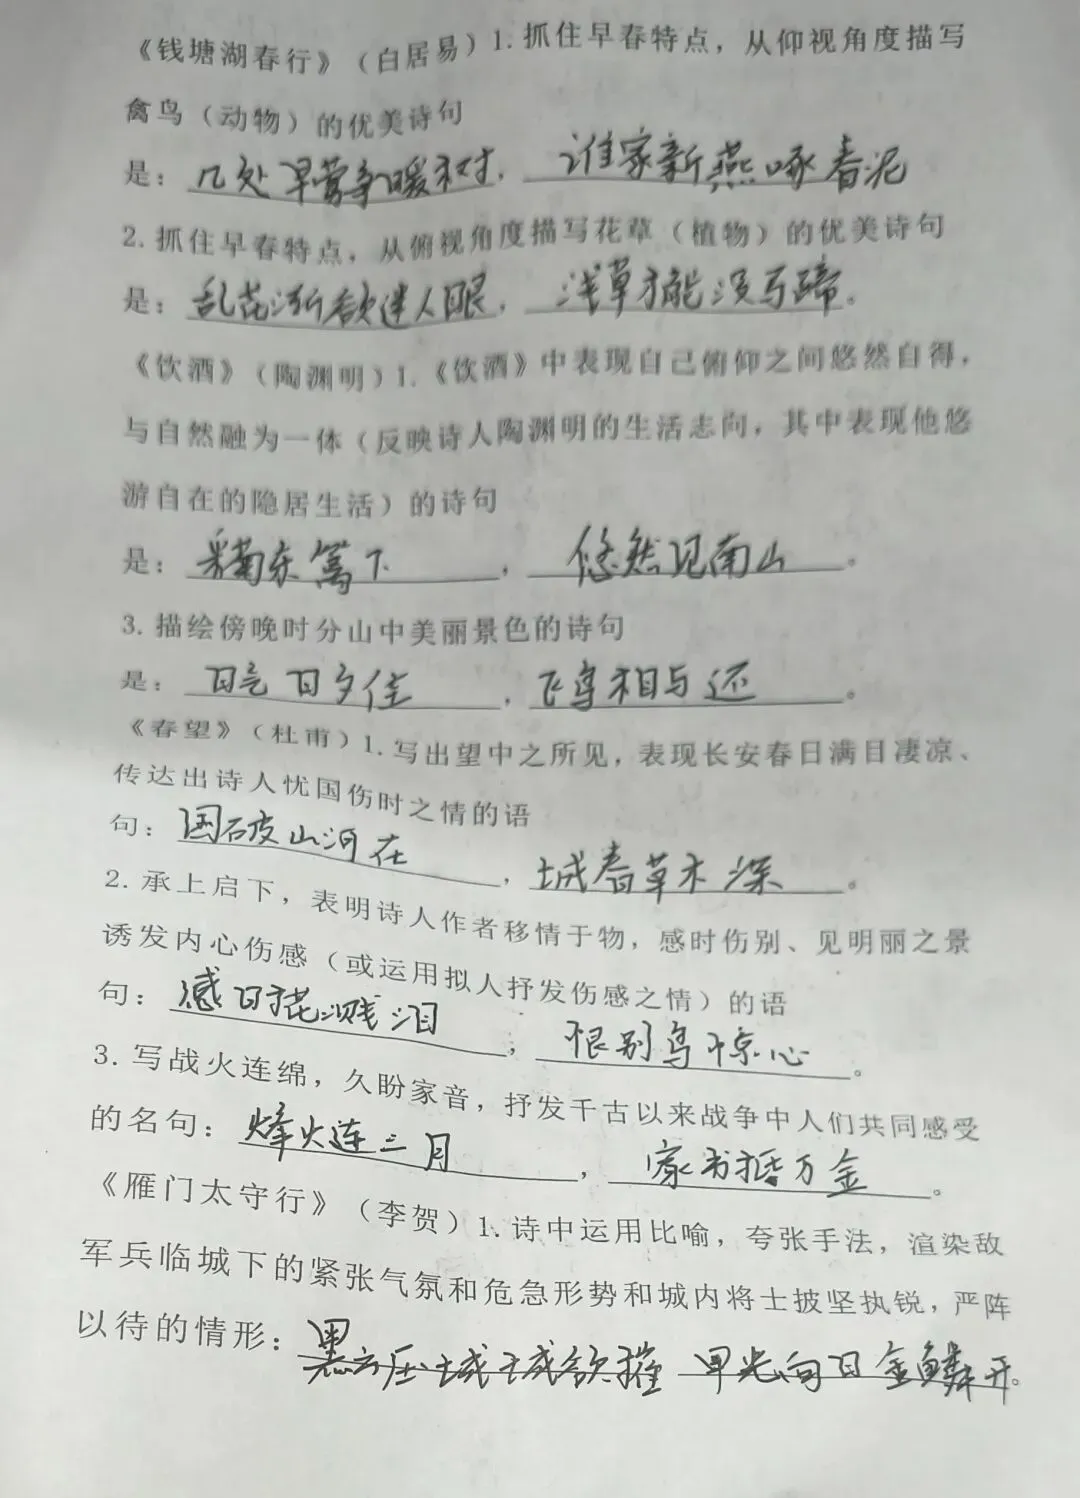 《钱塘湖春行》（白居易）1. 抓住早春特点，从仰视角度描写
禽鸟（动物）的优美诗句
是：几处早莺争暖树，谁家新燕啄春泥
2. 抓住早春特点，从俯视角度描写花草（植物）的优美诗句
是：乱花渐欲迷人眼，浅草才能没马蹄。
《饮酒》（陶渊明）1.《饮酒》中表现自己俯仰之间悠然自得，
与自然融为一体（反映诗人陶渊明的生活志向，其中表现他悠
游自在的隐居生活）的诗句
是：采菊东篱下，悠然见南山。
3. 描绘傍晚时分山中美丽景色的诗句
是：日气日夕佳，飞鸟相与还。
《春望》（杜甫）1. 写出望中之所见，表现长安春日满目凄凉、
传达出诗人忧国伤时之情的语
句：国破山河在，城春草木深。
2. 承上启下，表明诗人作者移情于物，感时伤别、见明丽之景
诱发内心伤感（或运用拟人抒发伤感之情）的语
句：感时花溅泪，恨别鸟惊心。
3. 写战火连绵，久盼家音，抒发千古以来战争中人们共同感受
的名句：烽火连三月，家书抵万金。
《雁门太守行》（李贺）1. 诗中运用比喻，夸张手法，渲染敌
军兵临城下的紧张气氛和危急形势和城内将士披坚执锐，严阵
以待的情形：黑云压城城欲摧 甲光向日金鳞开。